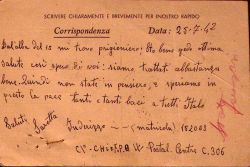 SCRIVERE CHIARAMENTE E BREVEMENTE PER INOLTRO RAPIDO
Corrispondenza Data: 25-7-42
Dall'alba del 15 mi trovo prigioniero; sto bene godo ottima
salute così spero di voi; siamo trattati abbastanza
bene. Quindi non state in pensiero, e speriamo in
presto la pace tanti e tanti baci a tutti Italo
Saluti
Indirizzo - (matricola) 152003
W Postal Centre C. 306